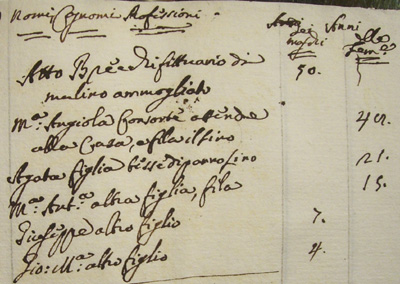 Nomi, Cognomi Professioni. Anni dei maschi Anni delle fem.e
Atto Bre e di fittuario di 50.
mulino ammogliato
M.a Angiola Consorte attende 42.
alla Casa, e fila il lino
Agata figlia tesse di panno lino 21.
M.a Ant.a altra figlia, fila 15.
Giuseppe altro figlio 7.
Gio: M.a altro figlio 4.